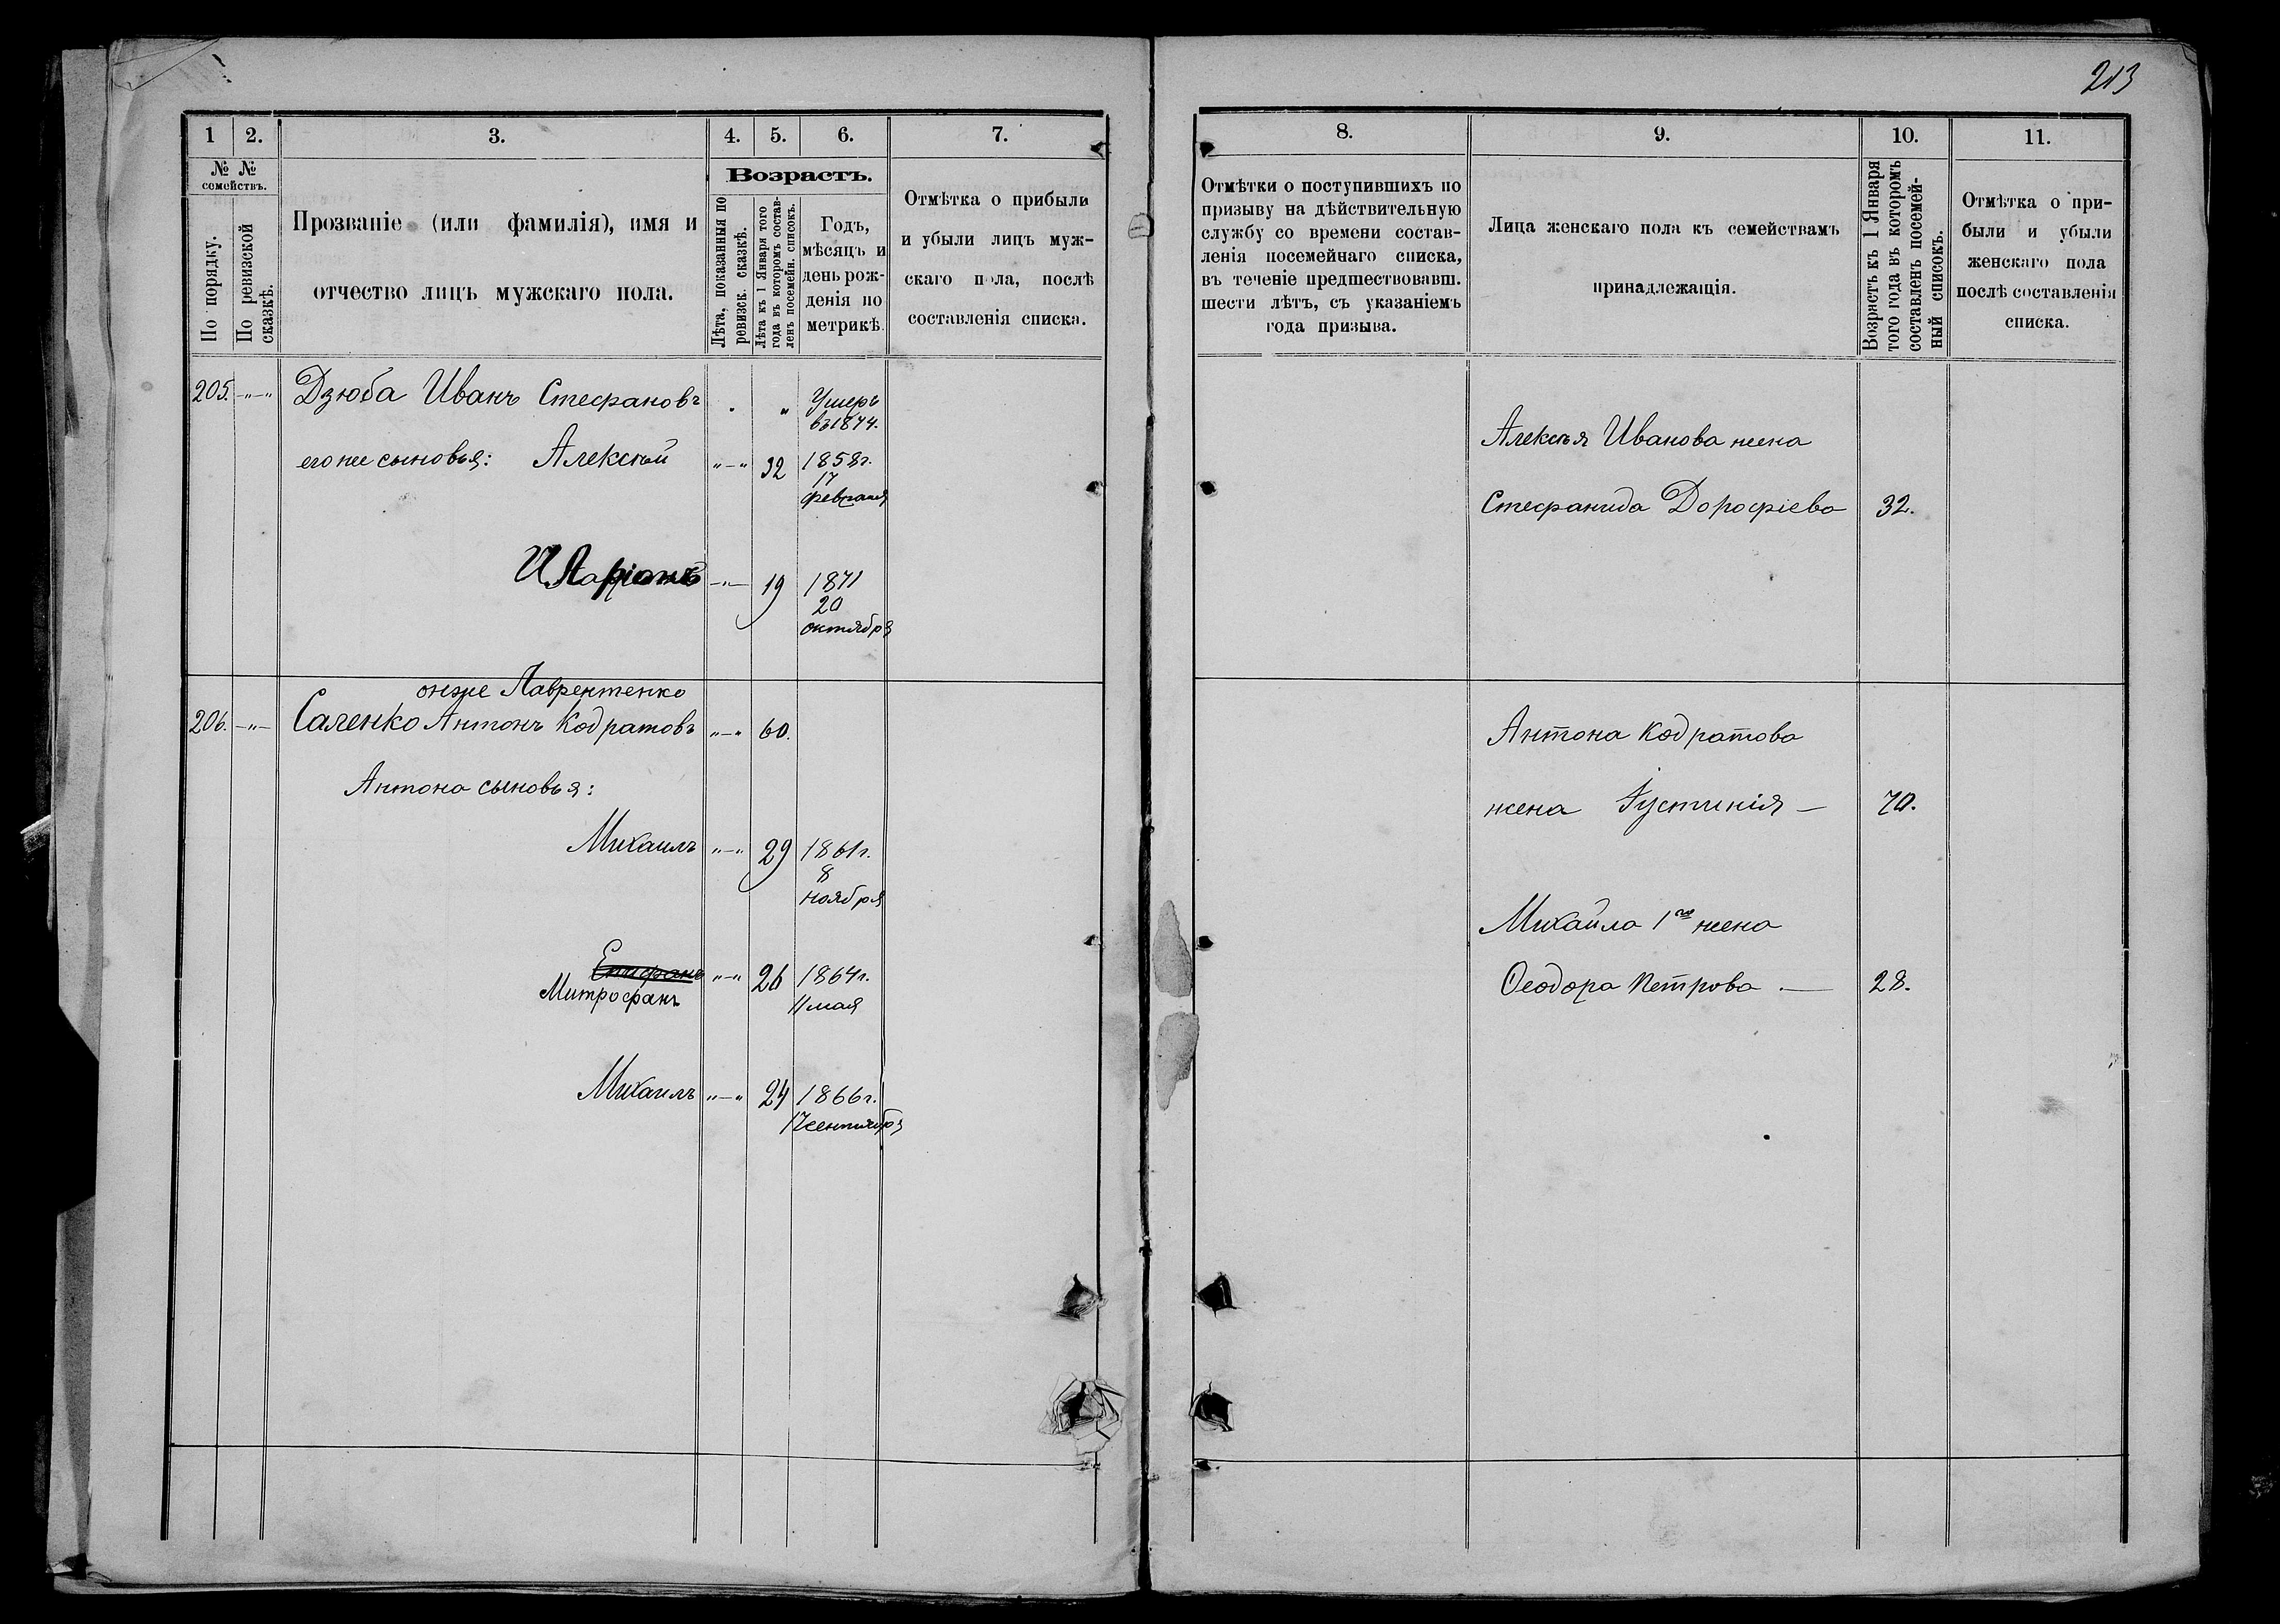 213
1 2. 3. 4. 5. 6. 7.
№ № семействъ.
По порядку.
По ревизской сказкѣ.
Прозваніе (или фамилія), имя и
отчество лицъ мужскаго пола.
Возрастъ.
Лѣта, показанныя по
ревизск. сказкѣ.
Лѣта къ 1 Января того
года въ которомъ состав-
ленъ посемейн. списокъ.
Годъ,
мѣсяцъ и
день рож-
денія по
метрикѣ.
Отмѣтка о прибыли
и убыли лицъ муж-
скаго пола, послѣ
составленія списка.
205. -"-" Дзюба Иванъ Стефановъ . " Умеръ
въ 1874.
его же сыновья: Алексѣй "-" 32 1858г.
17
февраля
Иларіонъ -"- 19 1871
20
октября
онже Лаврентенко
206. -"- Саленко Антонъ Кодратовъ "-" 60.
Антона сыновья:
Михаилъ "-" 29 1861г.
8
ноября
Епифанъ "-" 26 1864г.
Митрофанъ 11 мая
Михаилъ "-" 24 1866г.
17 сентября
8. 9. 10. 11.
Отмѣтки о поступившихъ по
призыву на дѣйствительную
службу со времени состав-
ленія посемейнаго списка,
въ теченіе предшествовавш.
шести лѣтъ, съ указаніемъ
года призыва.
Лица женскаго пола къ семействамъ
принадлежащія.
Возрастъ къ 1 Января
того года въ которомъ
составленъ посемей-
ный списокъ.
Отмѣтка о при-
были и убыли
женскаго пола
послѣ составленія
списка.
Алексѣя Иванова жена
Стефанида Дорофіева 32.
Антона Кодратова
жена Іустинія — 70.
Михайла 1го жена
Ѳеодора Петрова — 28.